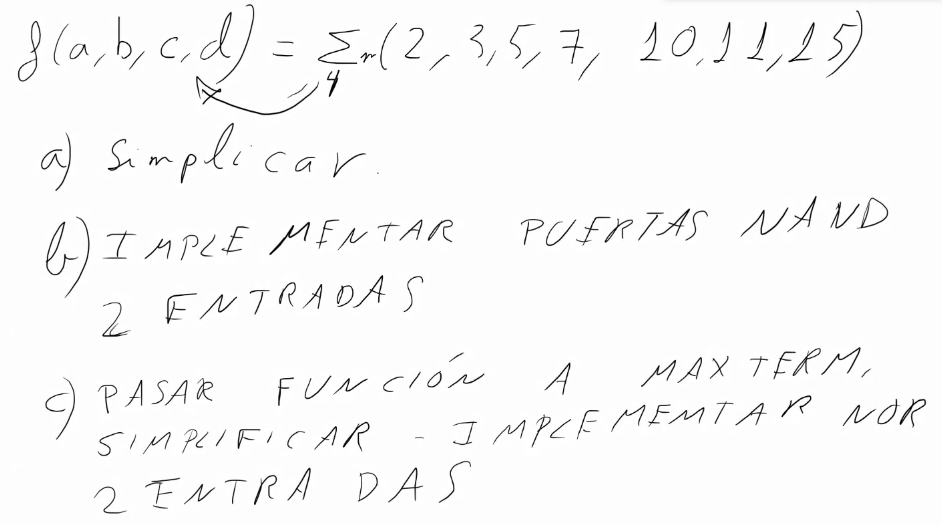 f(a,b,c,d) = Σm(2,3,5,7, 10,11,15)
4
a) Simplicar.
b) IMPLEMENTAR PUERTAS NAND
2 ENTRADAS
c) PASAR FUNCIÓN A MAXTERM,
SIMPLIFICAR - IMPLEMEMTAR NOR
2 ENTRADAS